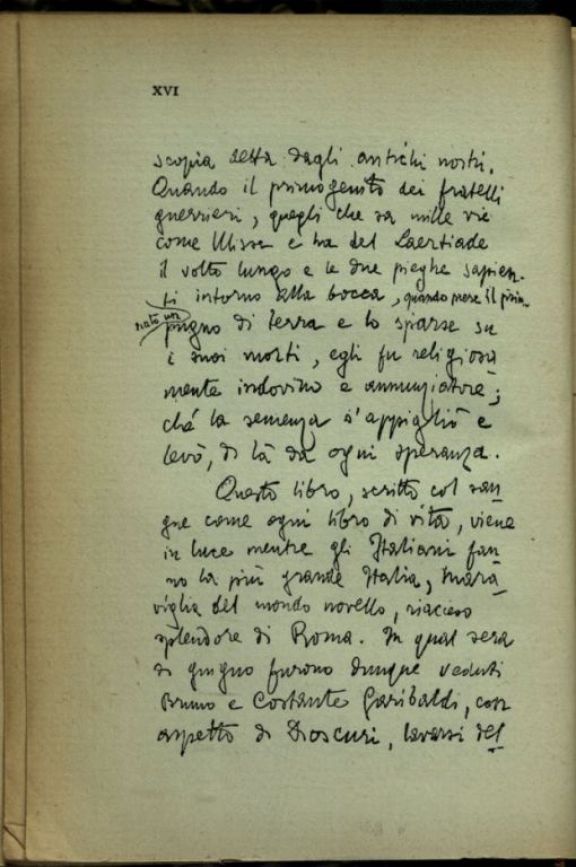 XVI
scopia detta dagli antichi nostri.
Quando il primogenito dei fratelli
guerrieri, quegli che sa mille vie
come Ulisse e ha del Laertiade
il volto lungo e le due pieghe sapien-
ti intorno alla bocca, quando prese il
pugno di terra e lo sparse su
i suoi morti, egli fu religiosa
mente indovino e annunziatore;
ché la semenza s'appigliò e
levò, di là da ogni speranza.
Questo libro, scritto col san
gue come ogni libro di vita, viene
in luce mentre gli Italiani fan
no la più grande Italia, mara
viglia del mondo novello, riacceso
splendore di Roma. In qual sera
di giugno furono dunque veduti
Bruno e Costante Garibaldi, con
aspetto di Dioscuri, lavarsi del